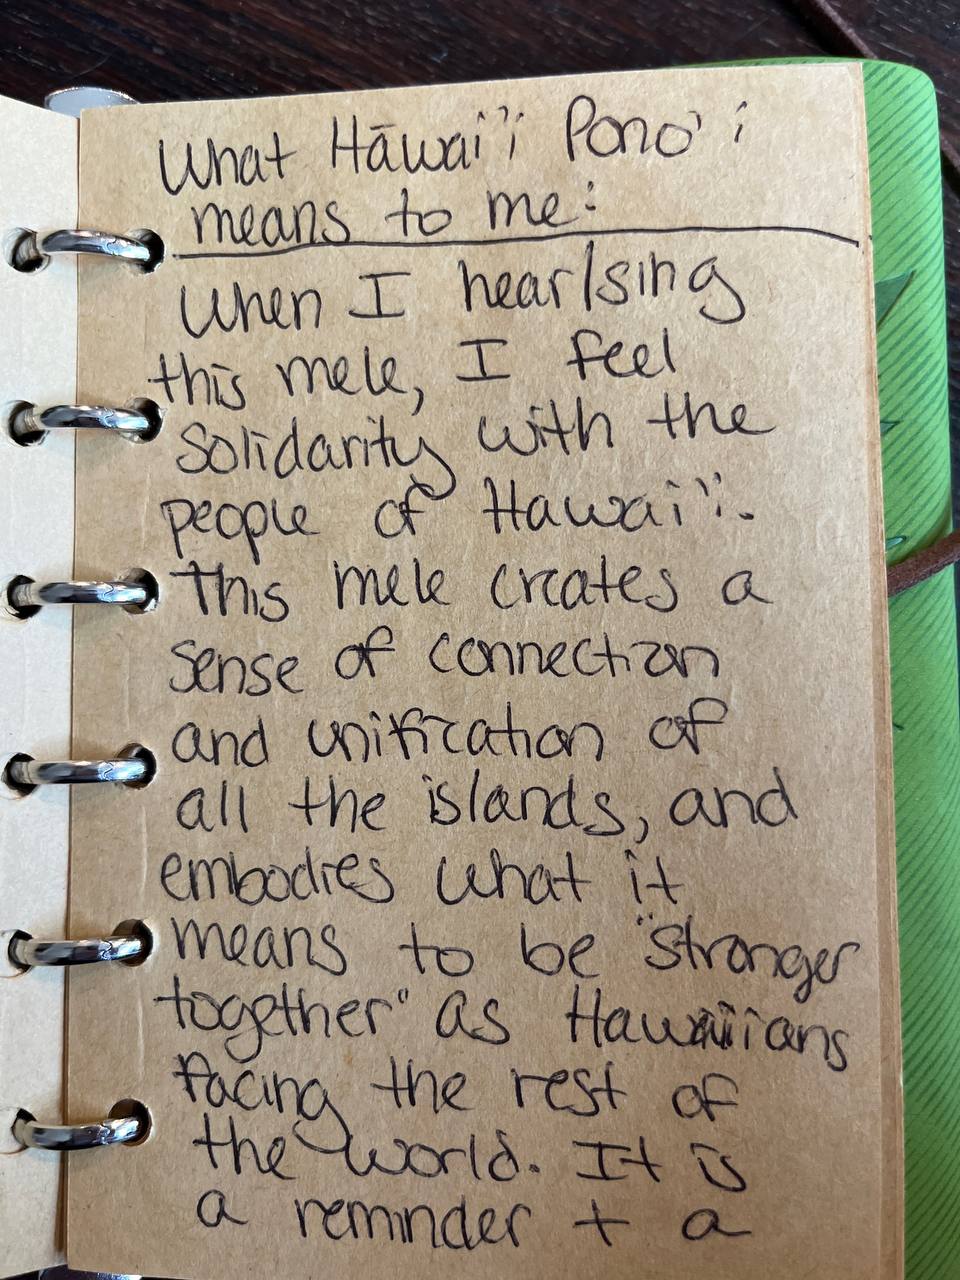 What Hāwai'i Pono'i
means to me:
When I hear/sing
this mele, I feel
solidarity with the
people of Hawai'i.
This mele creates a
sense of connection
and unification of
all the islands, and
embodies what it
means to be "stronger
together" as Hawaiians
facing the rest of
the world. It is
a reminder + a